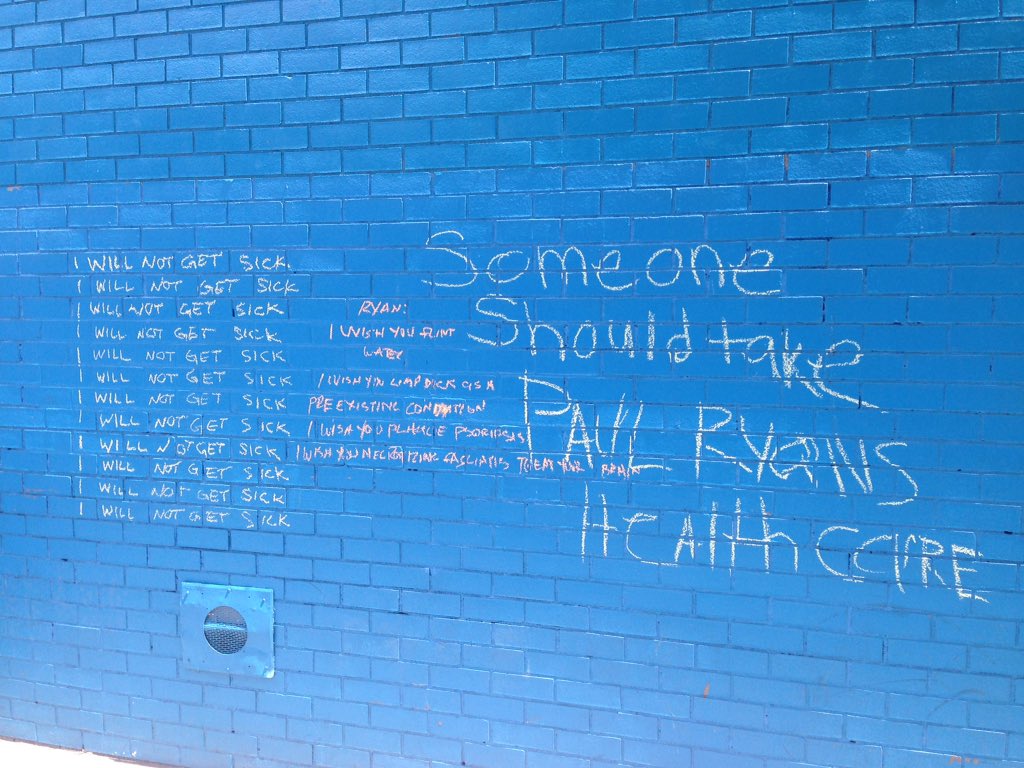 I WILL NOT GET SICK.
I WILL NOT GET SICK
I WILL NOT GET SICK
I WILL NOT GET SICK
I WILL NOT GET SICK
I WILL NOT GET SICK
I WILL NOT GET SICK
I WILL NOT GET SICK
I WILL NOT GET SICK
I WILL NOT GET SICK
I WILL NOT GET SICK
I WILL NOT GET SICK
RYAN:
I WISH YOU FLINT
WATER
I WISH YIN LIMP DICK AS A
PREEXISTING CONDITION
I WISH YOU PLAQUE PSORIASIS
I WISH YOU TO EAT YOUR BRAIN
Someone
Should take
PAUL RYANS
HEAlth CARE